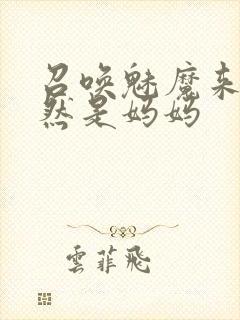 召唤魅魔来
然是妈妈
雲菲飛